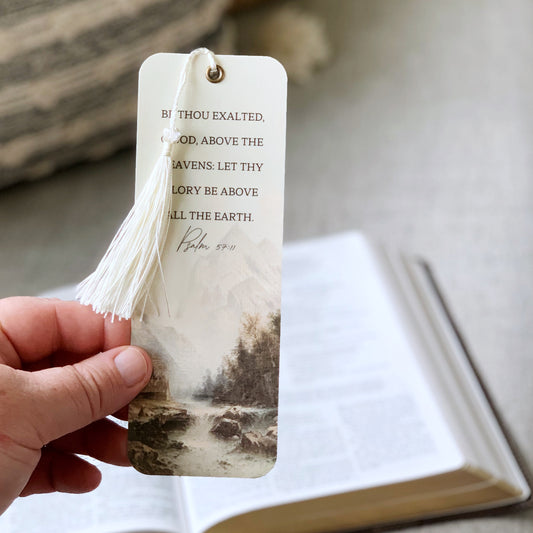 BE THOU EXALTED,
O GOD, ABOVE THE
HEAVENS: LET THY
GLORY BE ABOVE
ALL THE EARTH.
Psalm 57:11